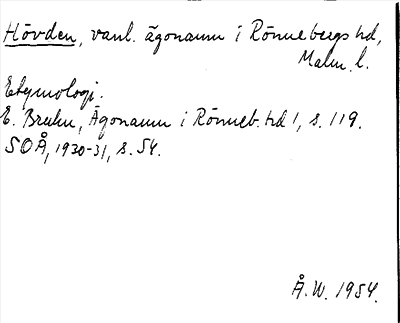 Hövden, vanl. ägonamn i Rönnebergs hd,
Malm. l.
Etymologi.
E. Bruhn, Ägonamn i Rönneb. hd 1, s. 119.
SOÅ, 1930-31, s. 54.
Å. W. 1954.